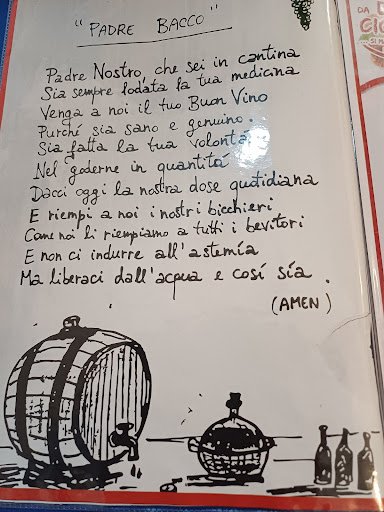 "PADRE BACCO"
Padre Nostro, che sei in cantina
Sia sempre lodata la tua medicina
Venga a noi il tuo Buon Vino
Purché sia sano e genuino.
Sia fatta la tua volontá
Nel goderne in quantitá
Dacci oggi la nostra dose quotidiana
E riempi a noi i nostri bicchieri
Come noi li riempiamo a tutti i bevitori
E non ci indurre all'astemía
Ma liberaci dall'acqua e cosí sía.
(AMEN)
DA